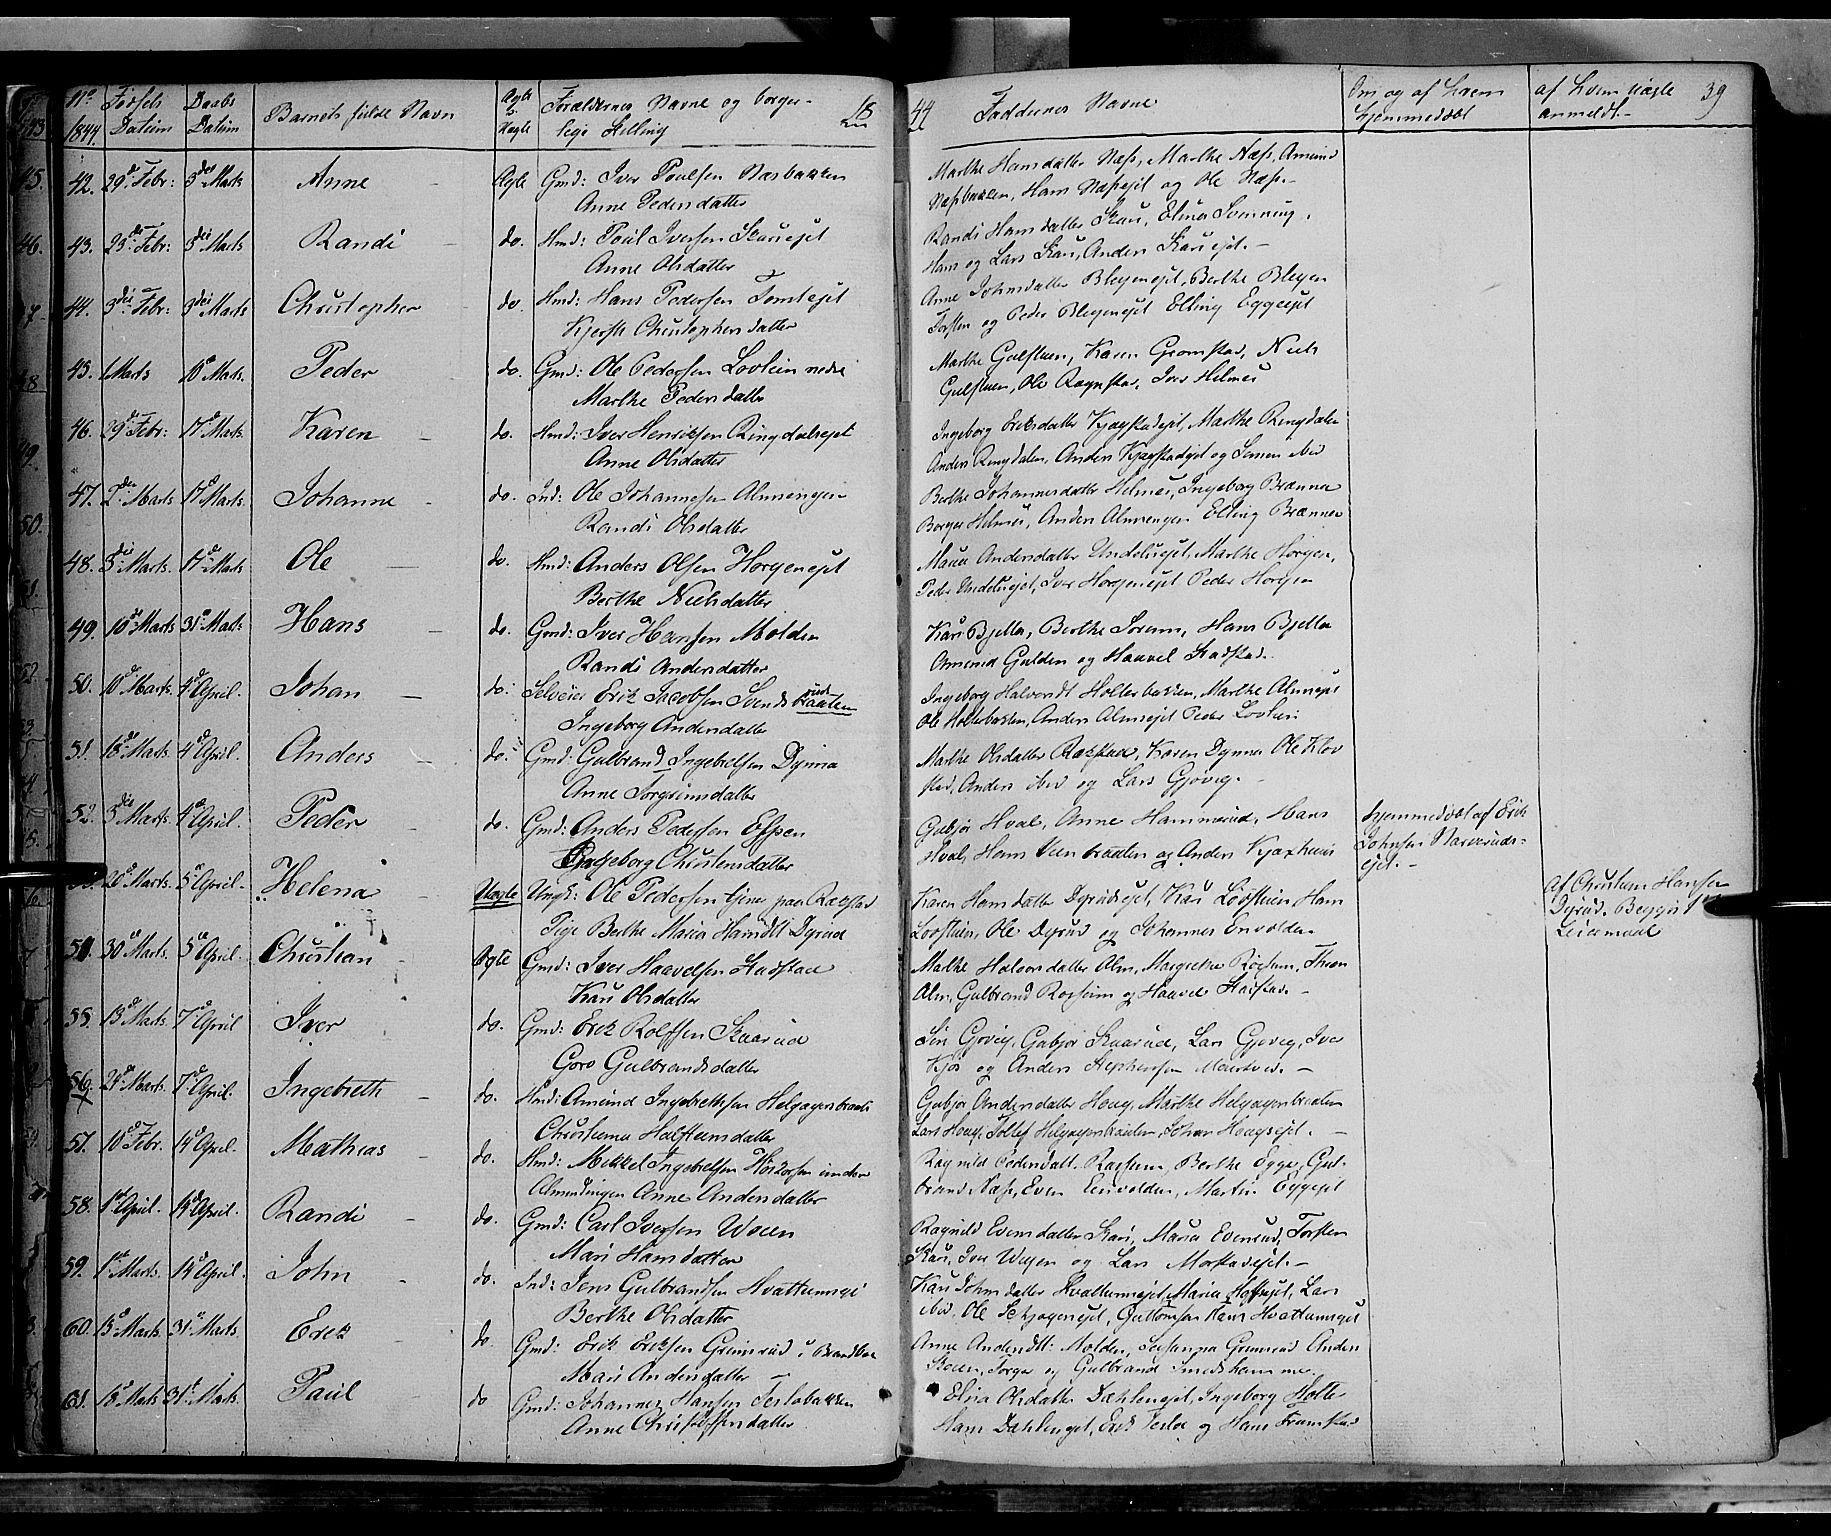 No 1844. Fødsels Datum Daabs Datum Barnets fulde Navn Ægte Uægte Forældrenes Navne og borgerlige Stilling 18
44 Faddernes Navne Om og af hvem hjemmedøbt af hvem uægte anmeldt. 39
42. 29 Febr: 3die Marts Anne Ægte Gmd: Iver Poulsen Næsbakken
Anne Pedersdatter
Marthe Hansdatter Næss, Marthe Næss, Amund
Næssbakken, Hans Næssejet og Ole Næss.
43. 23 Febr: 3die Marts Randi do. Hmd: Poul Iversen Skariejet
Anne Olsdatter
Randi Hansdatter Skari, Elina Svenning,
Hans og Lars Skari, Anders Skariejet.
44. 3die Febr: 3die Marts Christopher do. Hmd: Hans Pedersen Tomtejet
Kjersti Christophersdatter
Anne Johnsdatter Blegenejet, Berthe Blegen
Torsten og Peder Blegenejet Elling Eggeejet
45. 1 Marts 10 Marts. Peder do. Gmd: Ole Pedersen Lovlien nedre
Marthe Pedersdatter
Marthe Gulstuen, Karen Gromstad, Niels
Gulstuen, Ole Rognstad, Iver Helmei
46. 29 Febr: 17 Marts. Karen do. Hmd: Iver Henriksen Ringdalsejet
Anne Olsdatter
Ingeborg Eriksdatter Kjægstadejet, Marthe Ringdalen
Anders Ringdalen, Anders Kjægstadejet og Simen ibid
47. 2den Marts 17 Marts. Johanne do. Ind: Ole Johannesen Almningen
Randi Olsdatter
Berthe Johannesdatter Helmei, Ingeborg Brænna
Borger Helmei, Anders Almengen Elling Brænna
48. 3die Marts. 17 Marts Ole do. Hmd: Anders Olsen Horgenejet
Berthe Nielsdatter
Maria Andersdatter Undeliejet, Marthe Horgen,
Peder Undeliejet, Iver Horgenejet Peder Horgen
49. 10 Marts 31 Marts Hans do. Gmd: Iver Hansen Molden
Randi Andersdatter
Kari Bjella, Berthe Sorum, Hans Bjella
Amund Gulden og Haavel Stadstad.
50. 10 Marts. 4 April. Johan do. Selveier Erik Jacobsen Svendsbraaten
Ingeborg Andersdatter
Ingeborg Halvorsdt Holterbakken, Marthe Almsejet
Ole Holterbakken, Anders Almsejet Peder Lovlien
51. 18 Marts. 4 April. Anders do. Gmd: Gulbrand Ingebretsen Dynna
Anne Torgrimsdatter
Marthe Olsdatter Rækstad, Karen Dynna Ole Klov
stad, Anders ibid og Lars Gjøvig.
52. 3die Marts. 4 April. Peder do. Gmd: Anders Pedersen Espen
Ingeborg Christensdatter
Gubjør Hval, Anne Hammerud, Hans
Hval, Hans Veenbraaten og Anders Kjoshuus
hjemmedøbt af Erik
Johnsen Narverudsejet.
20 Marts. 5 April. Helena Uægte Ungk: Ole Pedersen tjener paa Rækstad
Pige Berthe Maria Hansdt Dyrud
Karen Hansdatter Dyrudsejet, Kari Løvstuen Hans
Løvstuen, Ole Dyrud og Johannes Envolden
Af Christian Hansen
Dyrud. Begges 1ste
Leiermaal
54. 30 Marts. 5 April. Christian Ægte Gmd: Iver Haavelsen Stadstad
Kari Olsdatter
Marthe Halvorsdatter Alm, Margrethe Rossum, Thron
Alm, Gulbrand Rossum og Haavel Stadstad.
55. 13 Marts. 7 April Iver do. Gmd: Erik Rolfsen Skaarud
Goro Gulbrandsdatter
Siri Gjøvig, Gubjør Skaarud, Lars Gjøvig, Iver
Kjos og Anders Stephensen
56. 21 Marts. 7 April. Ingebreth do. Hmd: Amund Ingebrethsen Helgagersbraaten
Christiana Halstensdatter
Gubjør Andersdatter Houg, Marthe Helgagersbraaten
Lars Houg, Tollef Helgagersbraaten, Johan Hougsejet.
57. 10 Febr. 14 April. Mathias do. Hmd: Mikkel Ingebretsen under
Almendingen Anne Andersdatter
Ragnild Pedersdatt. Rossum, Berthe Egge, Gul-
brand Næss, Even Envolden, Martin Eggeejet
58. 1st April. 14 April. Randi do. Gmd: Carl Iversen Woien
Mari Hansdatter
Ragnild Evensdatter Skari, Maria Evenrud, Torsten
Skari, Iver Woyen og Lars Morstadejet.
59. 1ste Marts. 14 April. John do. Ind: Jens Gulbrandsen Hvattumsei
Berthe Olsdatter
Kari Johnsdatter Hvattumsejet, Maria Hoffsejet, Lars
ibid, Ole Guttormsen Hans Hvattumsejet
60. 13 Marts 31 Marts. Erik do Gmd: Erik Eriksen Grimsrud i Brandbu
Mari Andersdatter
Anne Andersdtt: Molden, Susanna Grimsrud Anders
Skoien, Torger og Gulbrand Smedshammer.
61. 18 Marts 31 Marts. Paul do Gmd: Johannes Hansen Teslobakken
Anne Christoffersdatter
Elina Olsdatter Dæhlenejet, Ingeborg Holte
Hans Dæhlenejet, Erik Tesloe og Hans Framstad